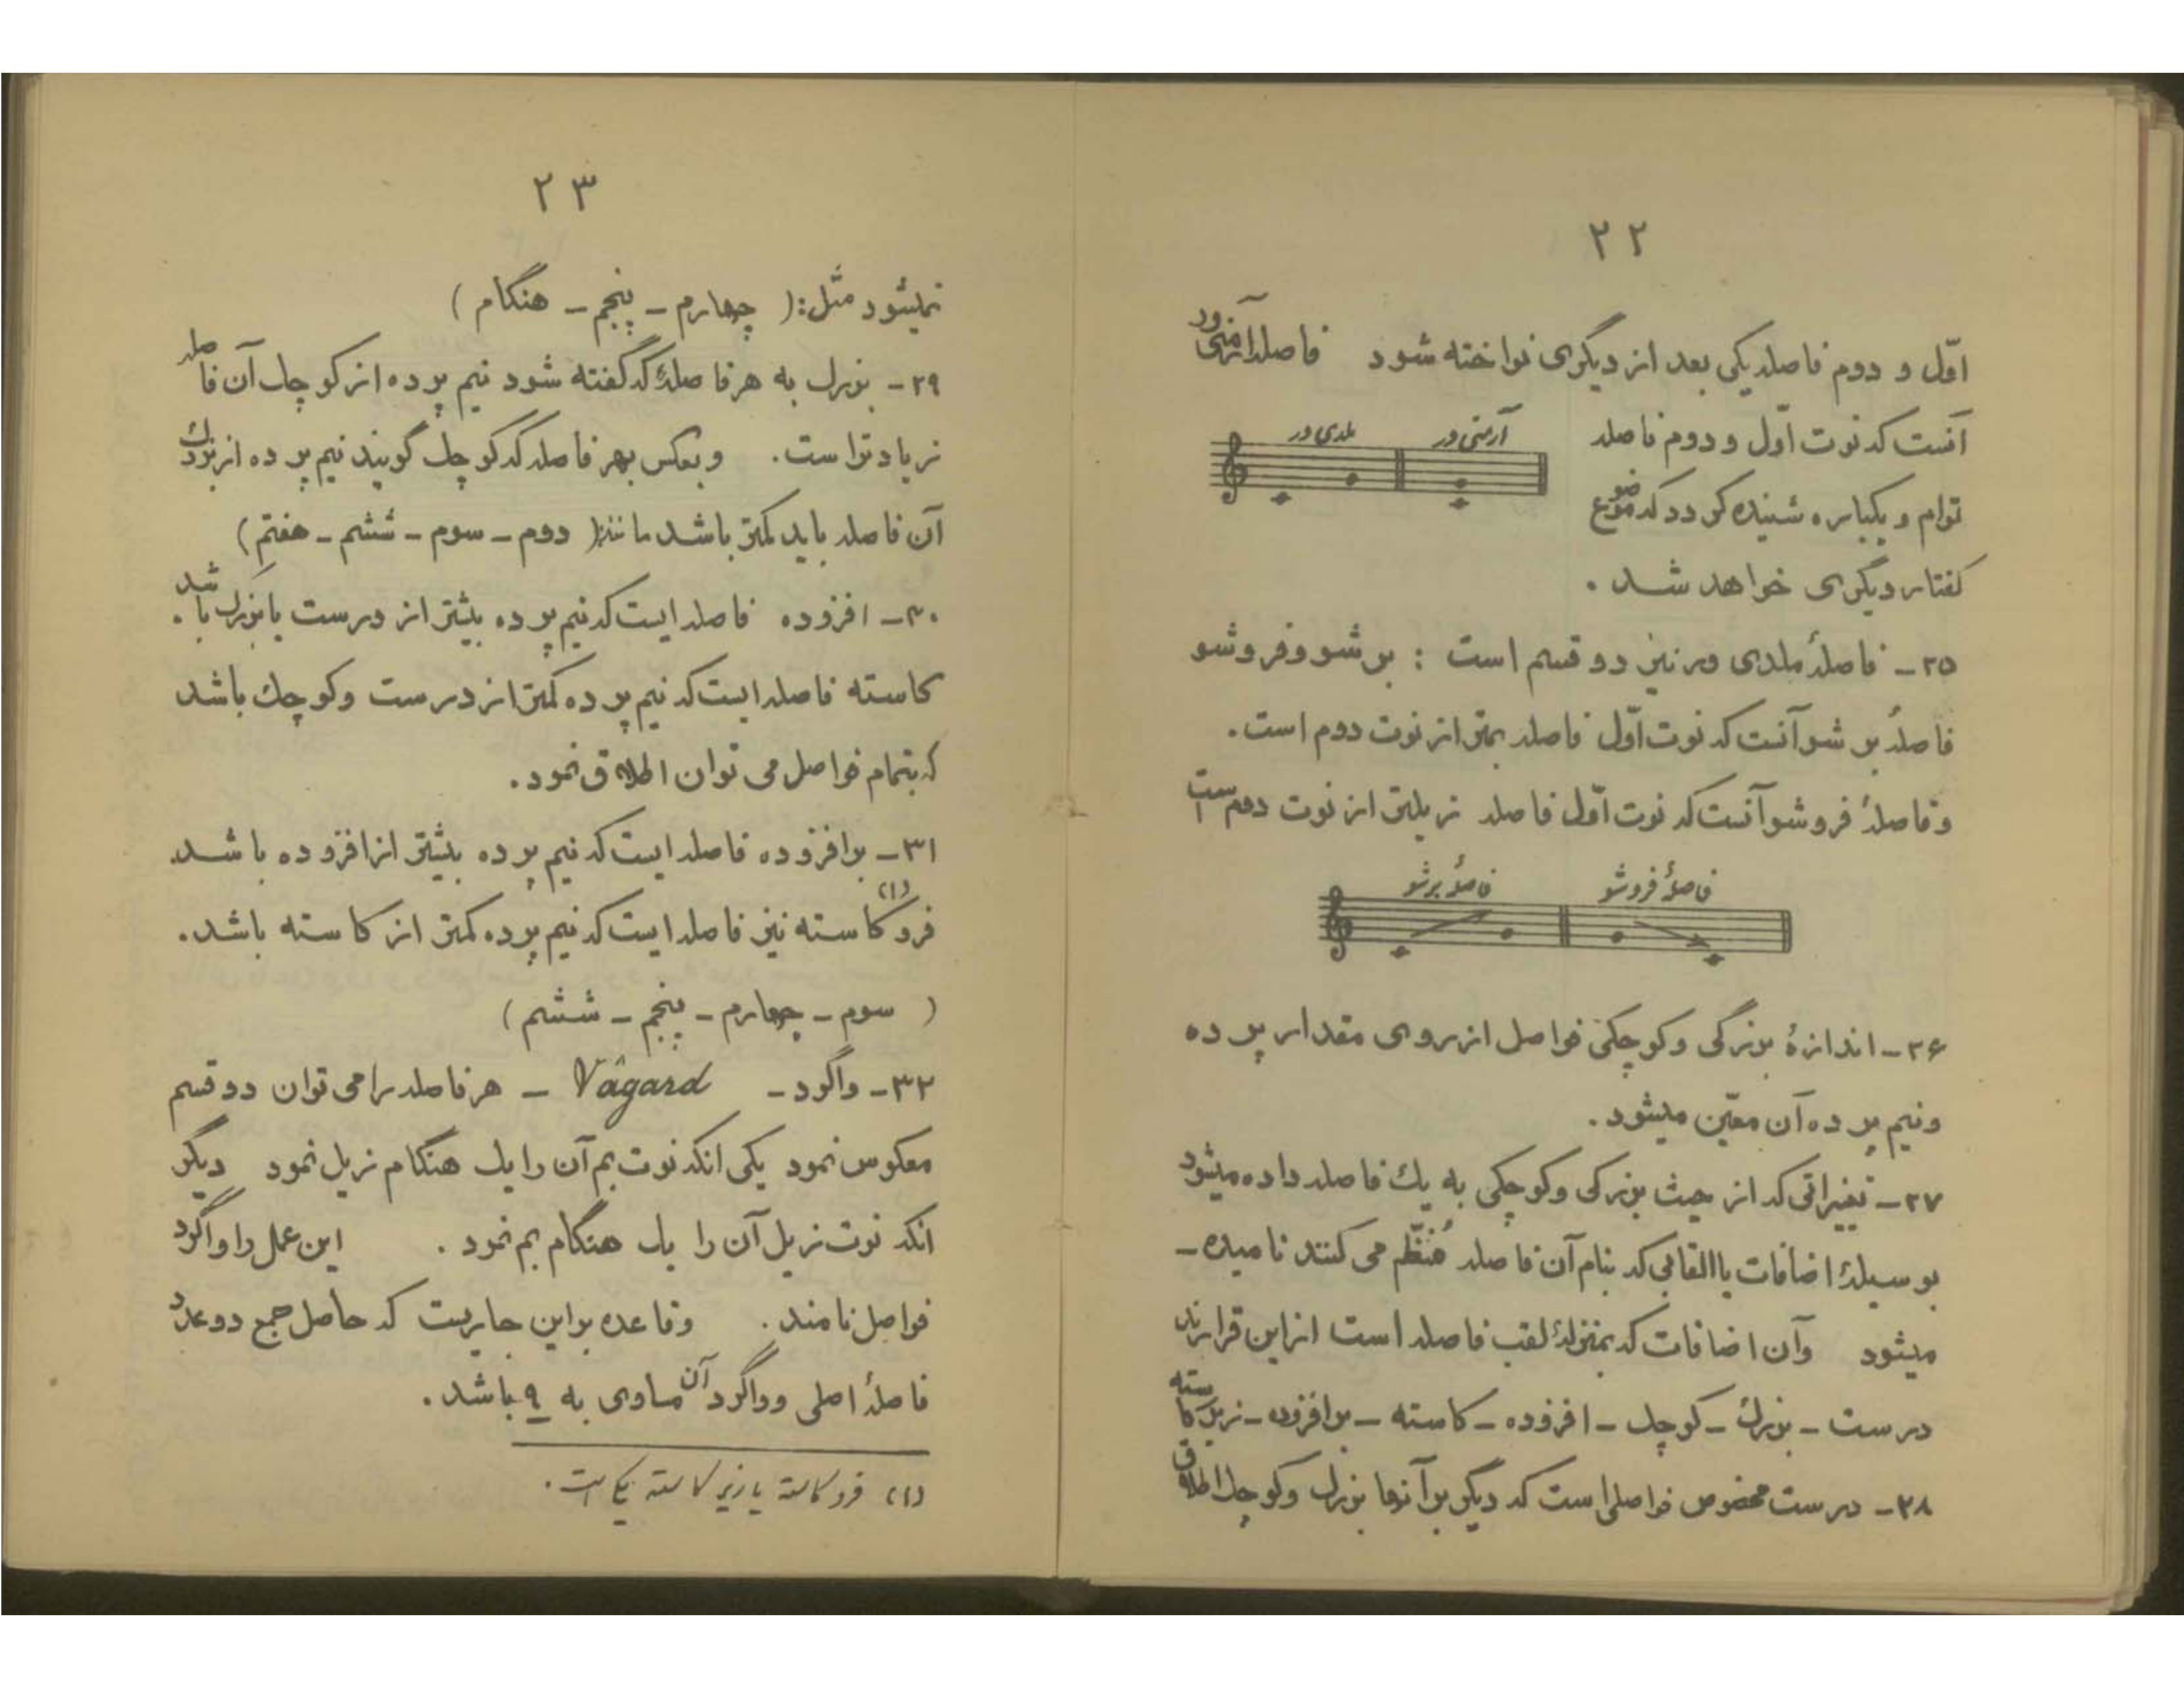 ۲۲
اوّل و دوم فاصله یکی بعد از دیگری نواخته شود فاصله آرمنی ور
آنست که نوت اوّل و دوم فاصله
ملدی ور
آرمنی ور
توام و یکباره شنیده گردد که موضوع
گفتار دیگری خواهد شد .
۲۵ - فاصلهٔ ملدی ور نیز دو قسم است : بر شو و فرو شو
فاصلهٔ بر شو آنست که نوت اوّل فاصله بمتر از نوت دوم است .
و فاصلهٔ فرو شو آنست که نوت اوّل فاصله زیلتر از نوت دوم است
فاصلهٔ برشو
فاصلهٔ فروشو
۲۶ - اندازهٔ بزرگی و کوچکی فواصل از روی مقدار پرده
و نیم پرده آن معیّن میشود .
۲۷ - تغیراتی که از حیث بزرگی و کوچکی به یك فاصله داده میشود
بوسیلهٔ اضافات یا القابی که بنام آن فاصله مُنظّم می کنند نامیده -
میشود وآن اضافات که بمنزلهٔ لقب فاصله است از این قرارند
درست - بزرگ - کوچك - افزوده - کاسته - بر افزوده - زیر کاسته
۲۸ - درست مخصوص فواصلی است که دیگر بر آنها بزرگ و کوچك اطلاق
۲۳
نمیشود مثل : ( چهارم - پنجم - هنگام )
۲۹ - بزرگ به هر فاصلهٔ که گفته شود نیم پرده از کوچك آن فاصله
زیادتر است . و بعکس بهر فاصله که کوچك گویند نیم پرده از بزرگ
آن فاصله باید کمتر باشد مانند ( دوم - سوم - ششم - هفتم )
۳۰ - افزوده فاصله ایست که نیم پرده بیشتر از درست یا بزرگ باشد .
کاسته فاصله ایست که نیم پرده کمتر از درست و کوچك باشد
که بتمام فواصل می توان اطلاق نمود .
۳۱ - بر افزوده فاصله ایست که نیم پرده بیشتر از افزوده باشد
فرو کاسته (۱) نیز فاصله ایست که نیم پرده کمتر از کاسته باشد .
( سوم - چهارم - پنجم - ششم )
۳۲ - واگرد - Vâgard - هر فاصله را می توان دو قسم
معکوس نمود یکی انکه نوت بم آن را یك هنگام زیل نمود دیگر
انکه نوت زیل آن را یك هنگام بم نمود . این عمل را واگرد
فواصل نامند . و قاعده بر این جاریست که حاصل جمع دو عدد
فاصلهٔ اصلی و واگرد آن مساوی به ۹ باشد .
(۱) فرو کاسته یا زیر کاسته یکی است .